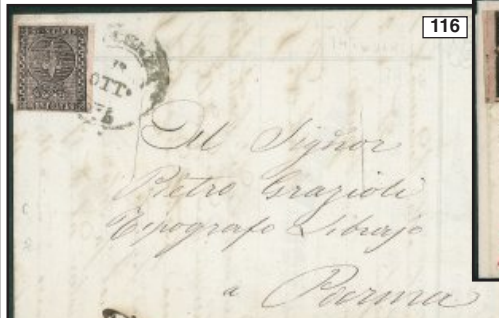 116
OTT.
Al Signor
Pietro Grazioli
Tipografo Librajo
a Parma